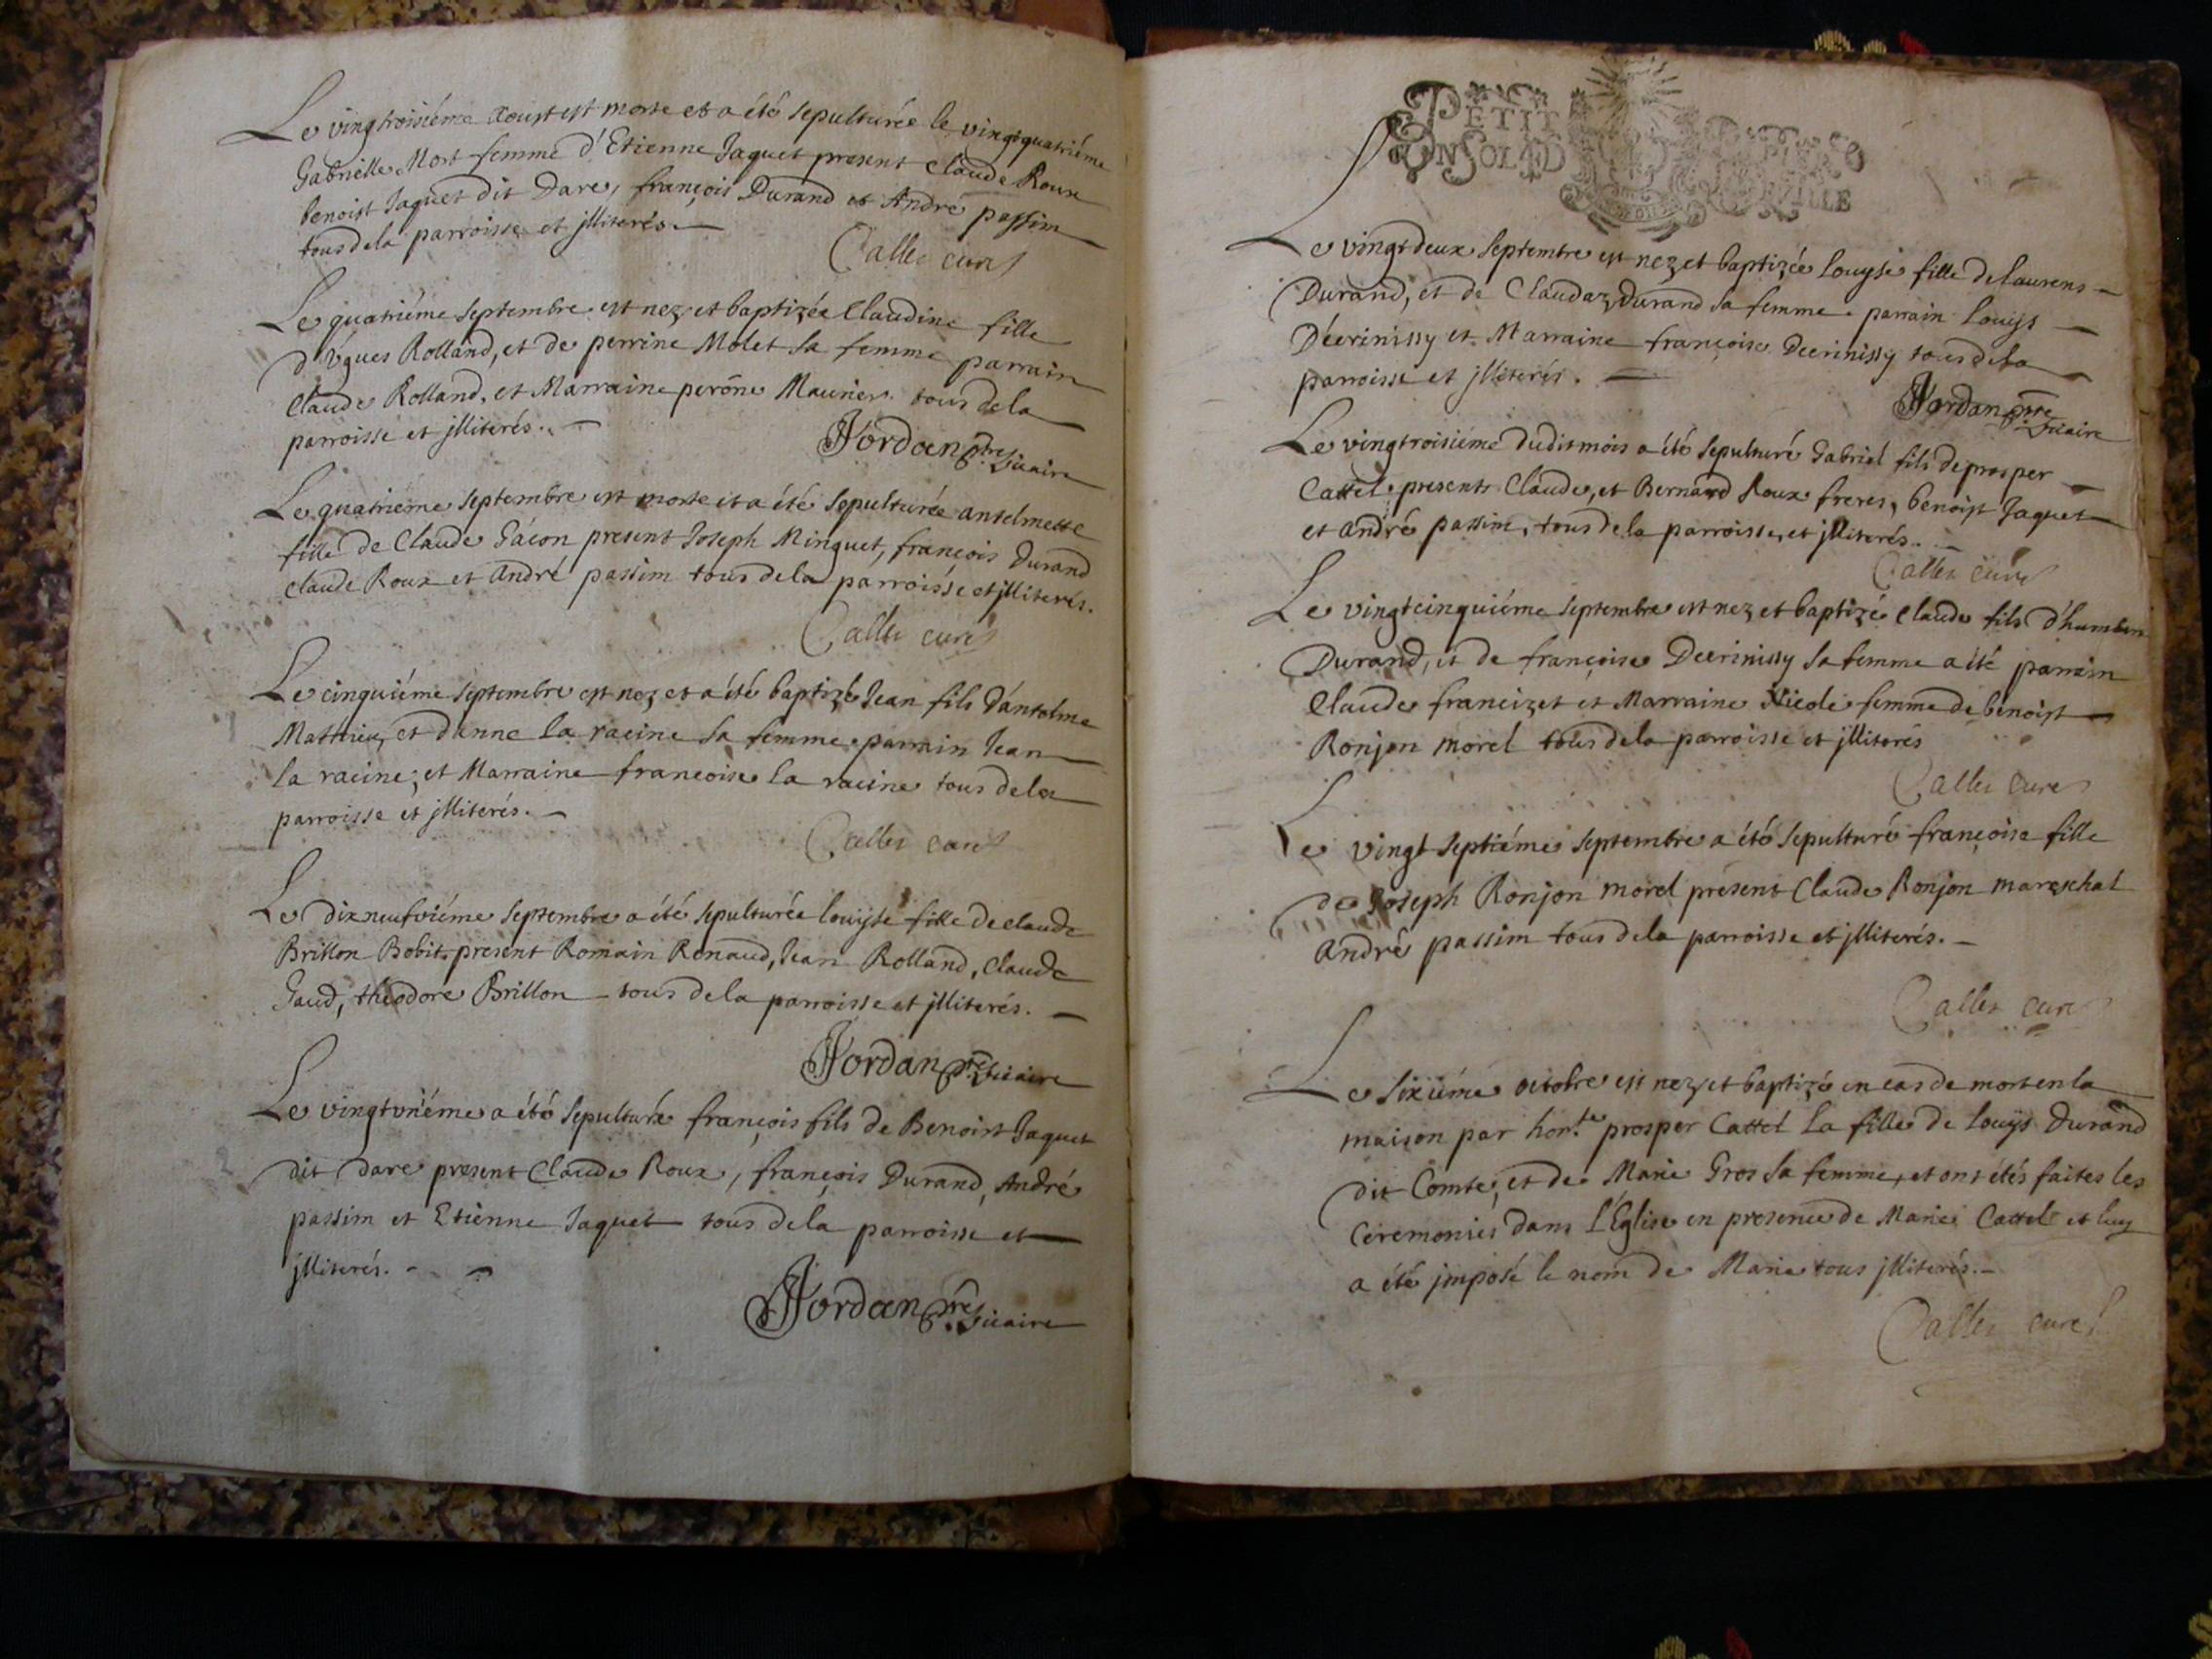 Le vingtroisiéme Aoust est morte et a été sepulturée le vingtquatriéme
Gabrielle Mort femme d'Etienne Jaquet present Claude Roux
benoist Jaquet dit Dare, françois Durand et André passim
tous de la parroisse et jlliterés.
Callet curé
Le quatriéme septembre est nez et baptizée Claudine fille
d'Vgues Rolland, et de perrine Molet sa femme parrain
Claude Rolland, et Marraine perône Maunier tous de la
parroisse et jlliterés.
Jordan ptre Vicaire
Le quatriéme septembre est morte et a été sepulturée antelmette
fille de Claude Gácon present Joseph Minguet, françois Durand
Claude Roux et André passim tous de la parroisse et jlliterés.
Callet curé
Le cinquiéme septembre est nez et a été baptizé Jean fils d'antolme
Mathieu, et d'anne la racine sa femme parrain Jean
la racine, et Marraine francoise la racine tous de la
parroisse et jlliterés.
Callet curé
Le dixneufviéme septembre a été sepulturée louyse fille de claude
Brillon Bobit, present Romain Renaud, Jean Rolland, Claude
Gaud, théodore Brillon tous de la parroisse et jlliterés.
Jordan ptre Vicaire
Le vingtvniéme a été sepulturé françois fils de Benoist Jaquet
dit Dare present Claude Roux, françois Durand, André
passim et Etienne Jaquet tous de la parroisse et
jlliterés.
Jordan ptre Vicaire
PETIT PAPIER
VILLE
Le vingtdeux septembre est nez et baptizée louyse fille de laurens
Durand, et de Claudaz Durand sa femme parrain Louys
Décrinissy et Marraine françoise Decrinissy tous de la
parroisse et jlliterés.
Jordan ptre Vicaire
Le vingtroisiéme dudit mois a été sepulturé Gabriel fils de prosper
Cattel presents Claude, et Bernard Roux freres, benoist Jaquet
et André passim, tous de la parroisse, et jlliterés.
Callet curé
Le vingtcinquiéme septembre est nez et baptizé Claude fils d'humbert
Durand, et de françoise Decrinissy sa femme a été parrain
Claude francizet et Marraine Nicole femme de benoist
Ronjon morel tous de la parroisse et jlliterés
Callet curé
Le vingt septiéme septembre a été sepulturé françoise fille
de Joseph Ronjon morel présent Claude Ronjon mareschal
André passim tous de la parroisse et jlliterés.
Callet curé
Le sixiéme octobre est nez et baptizé en cas de mort en la
maison par hon.te prosper Cattel la fille de louys Durand
dit Comte, et de Marie Gros sa femme, et ont étés faites les
Ceremonies dans l'Église en presence de Marie Cattel et luy
a été jmposé le nom de Marie tous jlliterés.
Callet curé